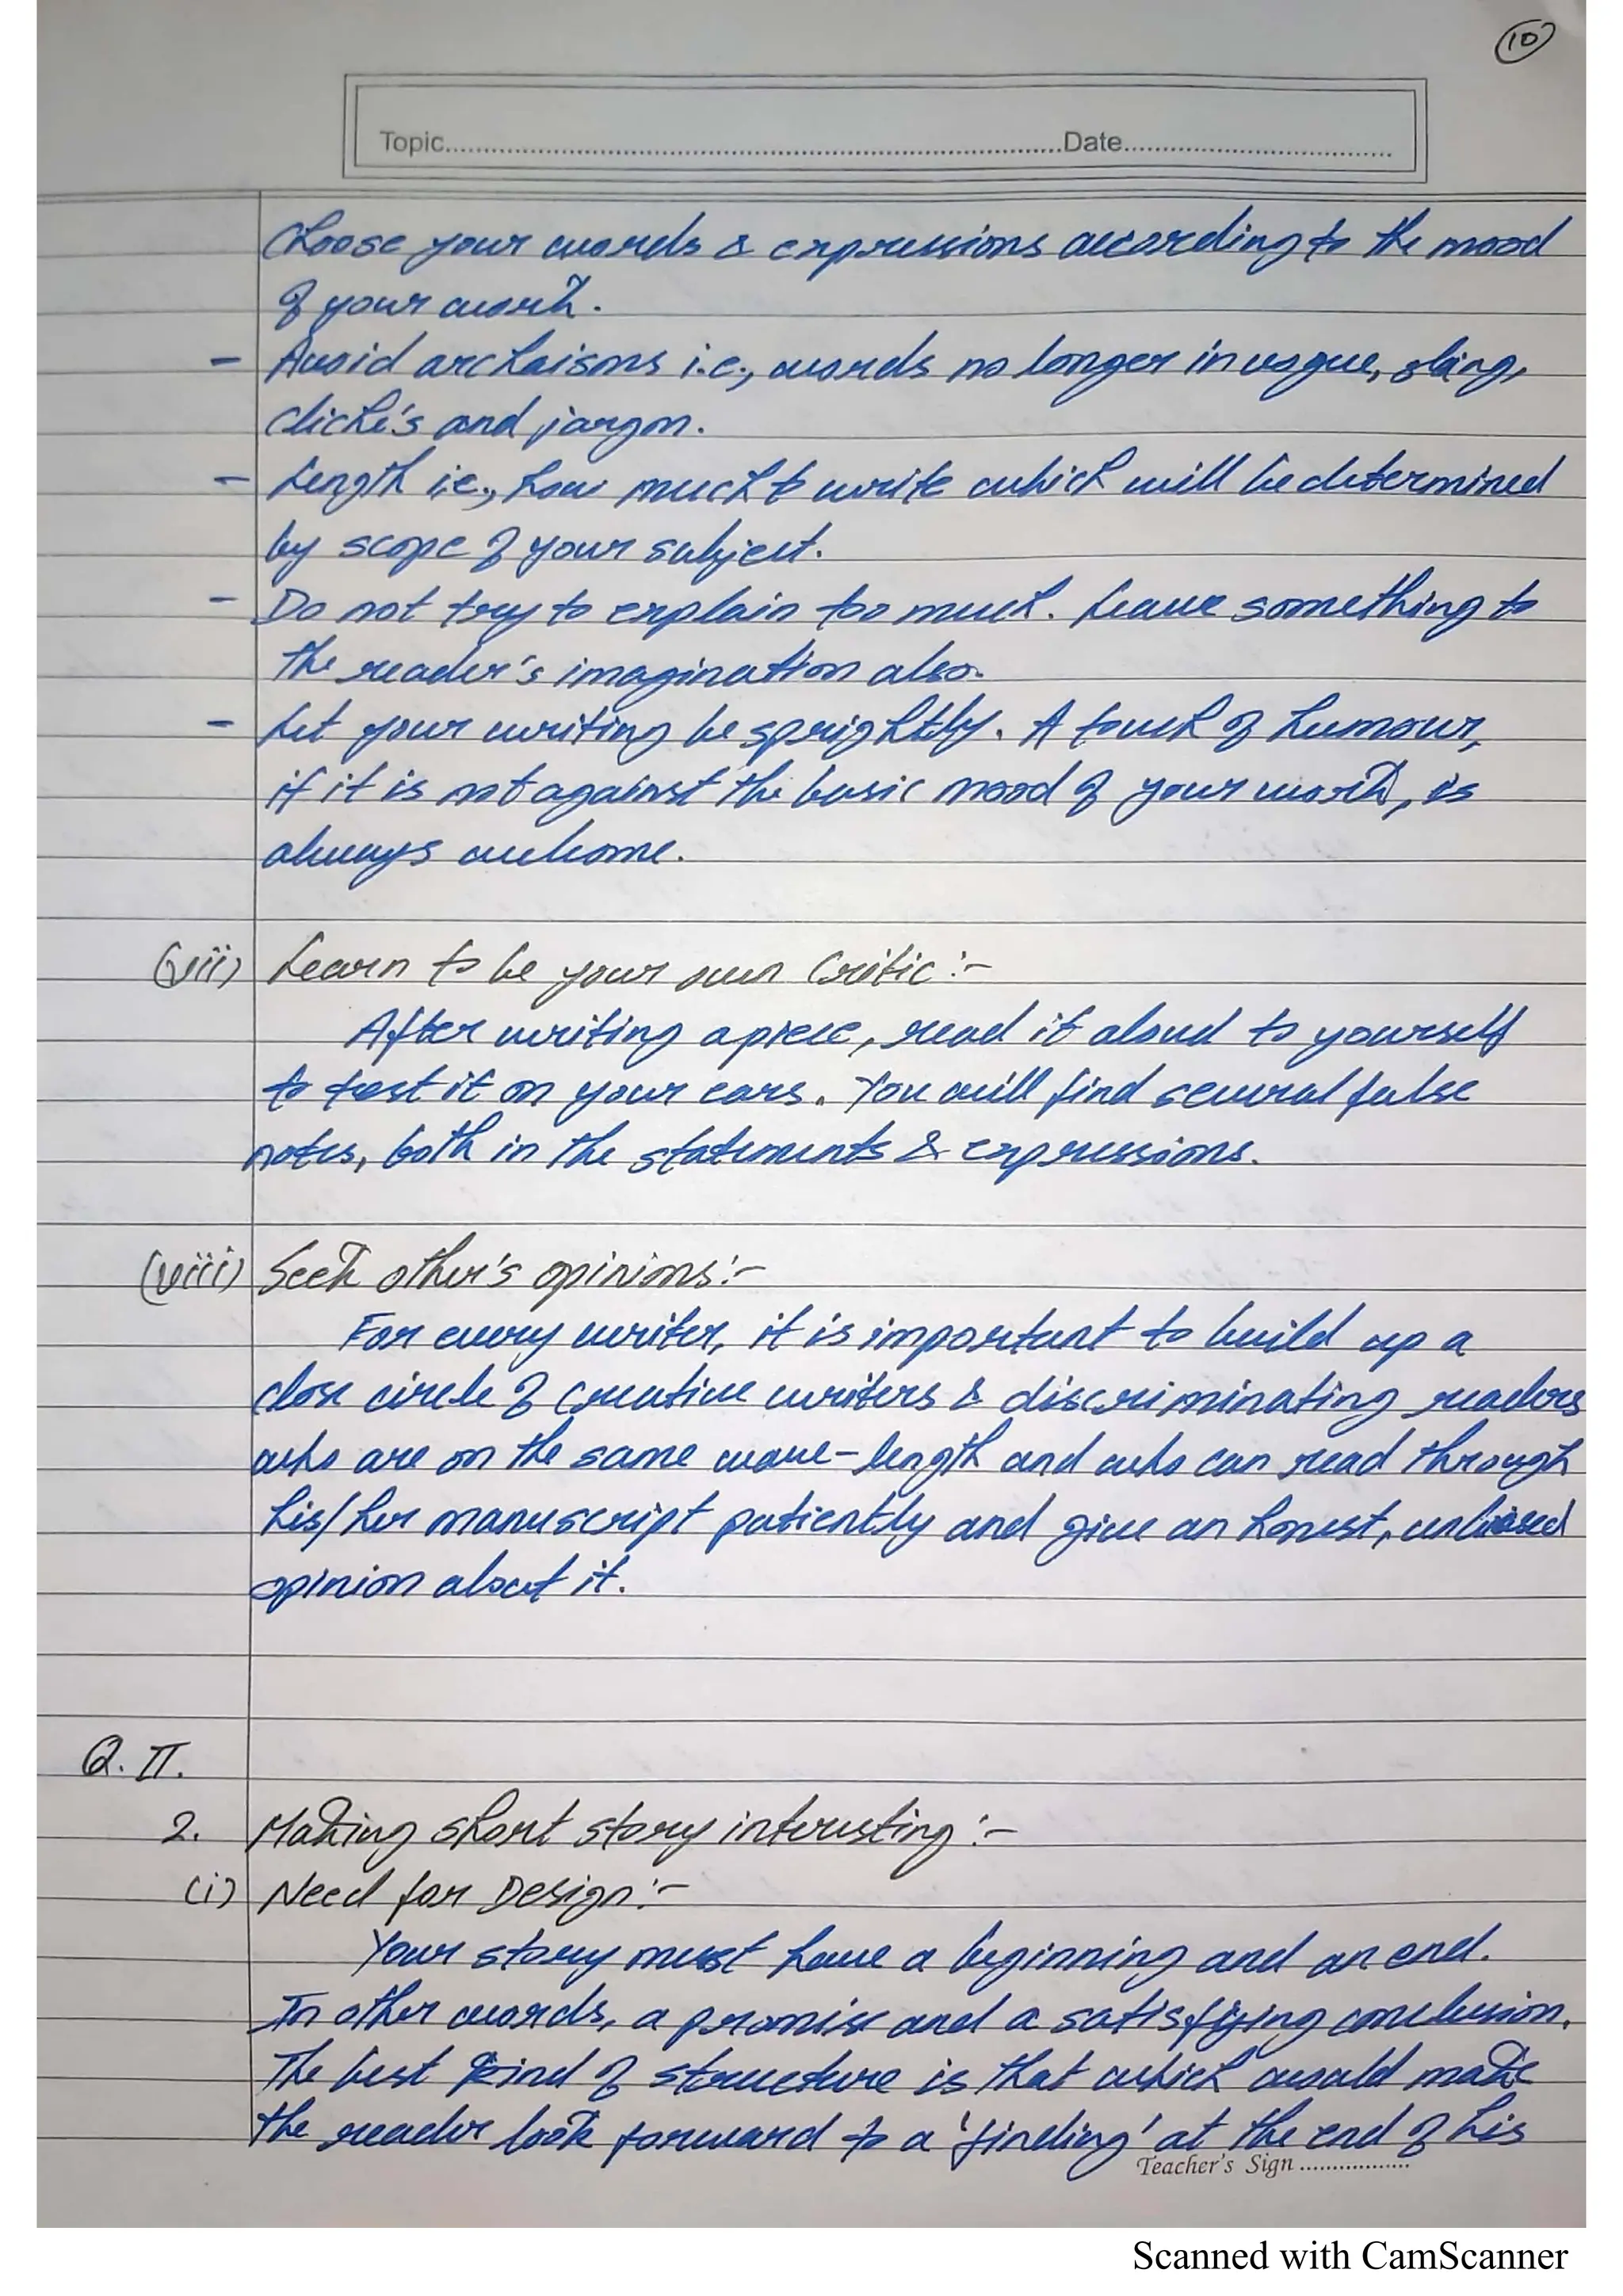 10
Topic..........Date..........
Choose your words & expressions according to the mood
of your work.
- Avoid archaisms i.e., words no longer in vogue, slang,
cliché's and jargon.
- Length i.e., how much to write which will be determined
by scope of your subject.
- Do not try to explain too much. Leave something to
the reader's imagination also.
- Let your writing be sprightly. A touch of humour,
if it is not against the basic mood of your work, is
always welcome.
(vii) Learn to be your own Critic:-
After writing a piece, read it aloud to yourself
to test it on your ears. You will find several false
notes, both in the statements & expressions.
(viii) Seek other's opinions:-
For every writer, it is important to build up a
close circle of creative writers & discriminating readers
who are on the same wave-length and who can read through
his/her manuscript patiently and give an honest, unbiased
opinion about it.
Q. II.
2. Making short story interesting:-
(i) Need for Design:-
Your story must have a beginning and an end.
In other words, a promise and a satisfying conclusion.
The best kind of structure is that which would make
the reader look forward to a 'finding' at the end of his
Teacher's Sign ..........
Scanned with CamScanner